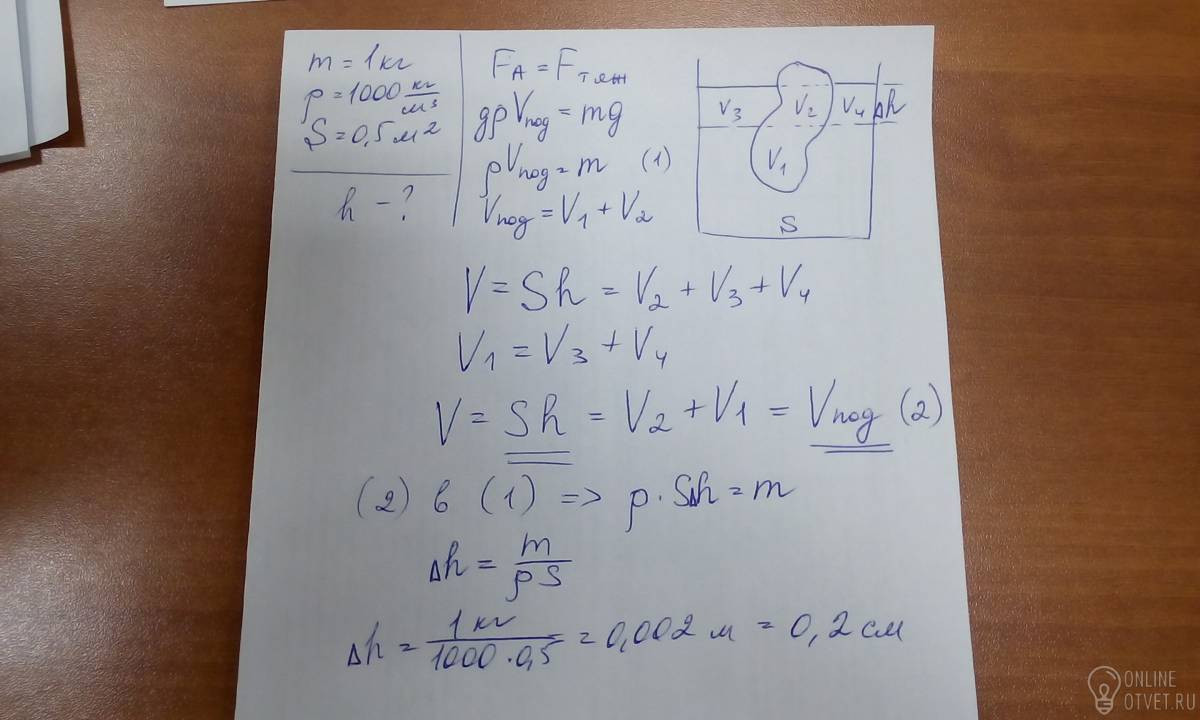 m = 1кг
ρ = 1000 кг/м³
S = 0,5 м²
h - ?
F_A = F_тяж
gρV_под = mg
ρV_под = m (1)
V_под = V₁ + V₂
V₃ V₂ V₄ Δh
V₁
S
V = Sh = V₂ + V₃ + V₄
V₁ = V₃ + V₄
V = Sh = V₂ + V₁ = V_под (2)
(2) в (1) => ρ · SΔh = m
Δh = m/ρS
Δh = 1 кг/1000·0,5 = 0,002 м = 0,2 см
ONLINE
OTVET.RU